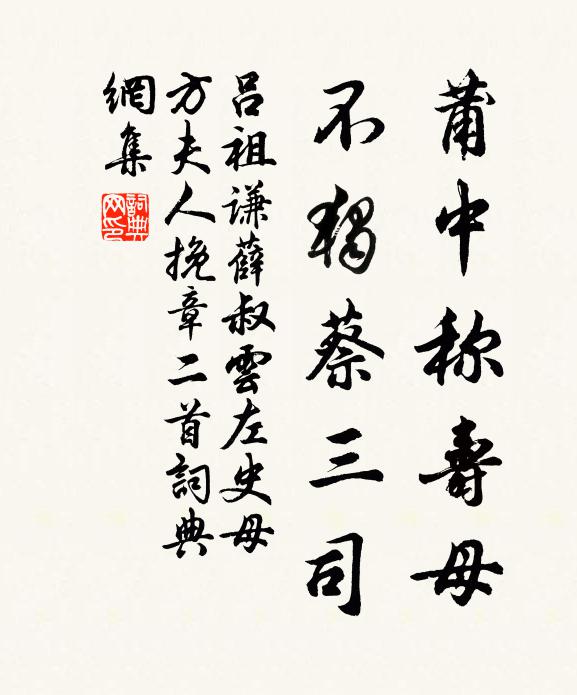 莆中称壽母
不獨蔡三司
呂祖謙薛叔雲左史母
方夫人挽章二首詞典
網集
詞典
网印